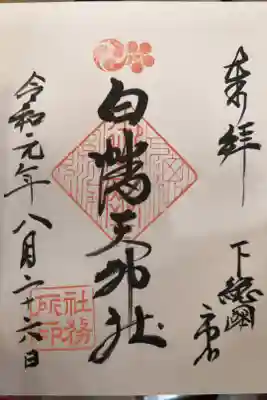 奉拝
下總國
市川
白幡天神社
令和元年八月二十六日
社務
所印